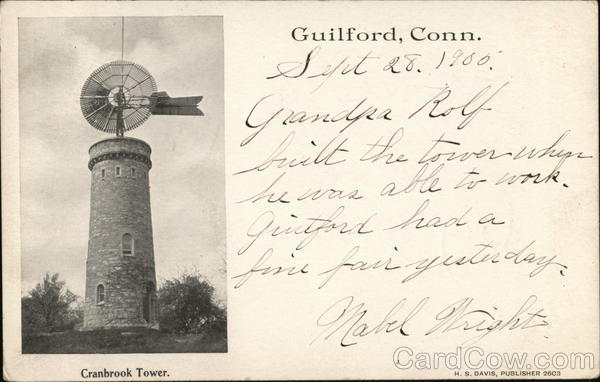 Guilford, Conn.
Sept 28. 1905.
Grandpa Rolf
built the tower when
he was able to work.
Guilford had a
fine fair yesterday.
Mabel Wright.
Cranbrook Tower.
H. S. DAVIS, PUBLISHER 2603
CardCow.com